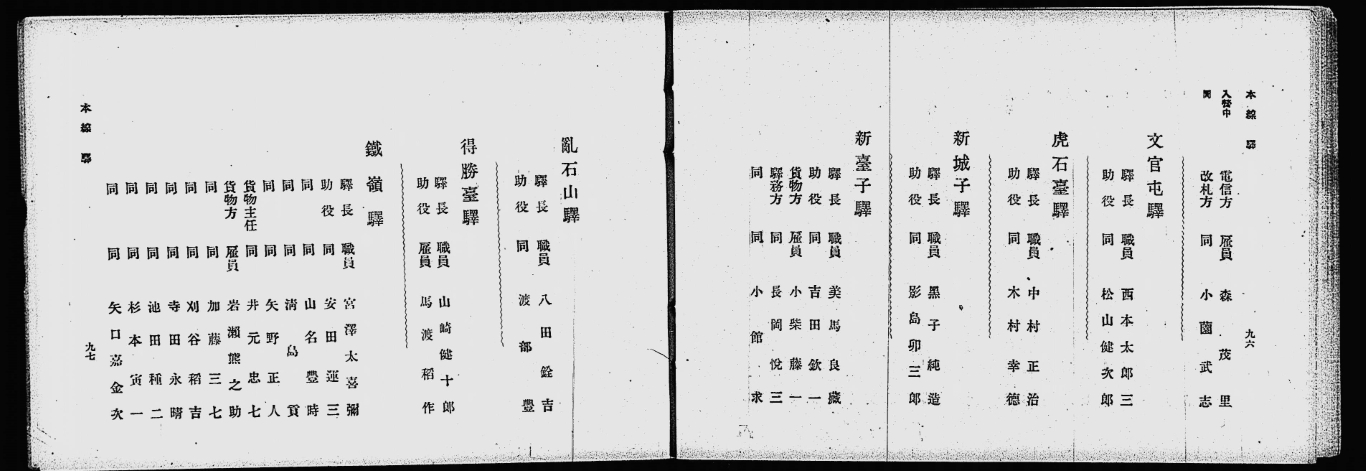 本線 驛
九六
入營中 電信方 雇員 森茂里
同 改札方 同 小薗武志
文官屯驛
驛長 職員 西本太郎三
助役 同 松山健次郎
虎石臺驛
驛長 職員 中村正治
助役 同 木村幸德
新城子驛
驛長 職員 黑子純造
助役 同 影島卯三郎
新臺子驛
驛長 職員 美馬良藏
助役 同 吉田欽一
貨物方 雇員 小柴藤一
驛務方 同 長岡悅三
同 同 小館求
亂石山驛
驛長 職員 八田銓吉
助役 同 渡部豊
得勝臺驛
驛長 職員 山崎健十郎
助役 雇員 馬渡稻作
鐵嶺驛
驛長 職員 宮澤太喜彌
助役 同 安田運三
同 同 山名豊時
同 同 淸島貢
同 同 矢野正人
貨物主任 同 井元忠七
貨物方 雇員 岩瀨熊之助
同 同 加藤三七
同 同 刈谷稻吉
同 同 寺田永晴
同 同 池田種二
同 同 杉本寅一
同 同 矢口嘉金次
本線 驛
九七